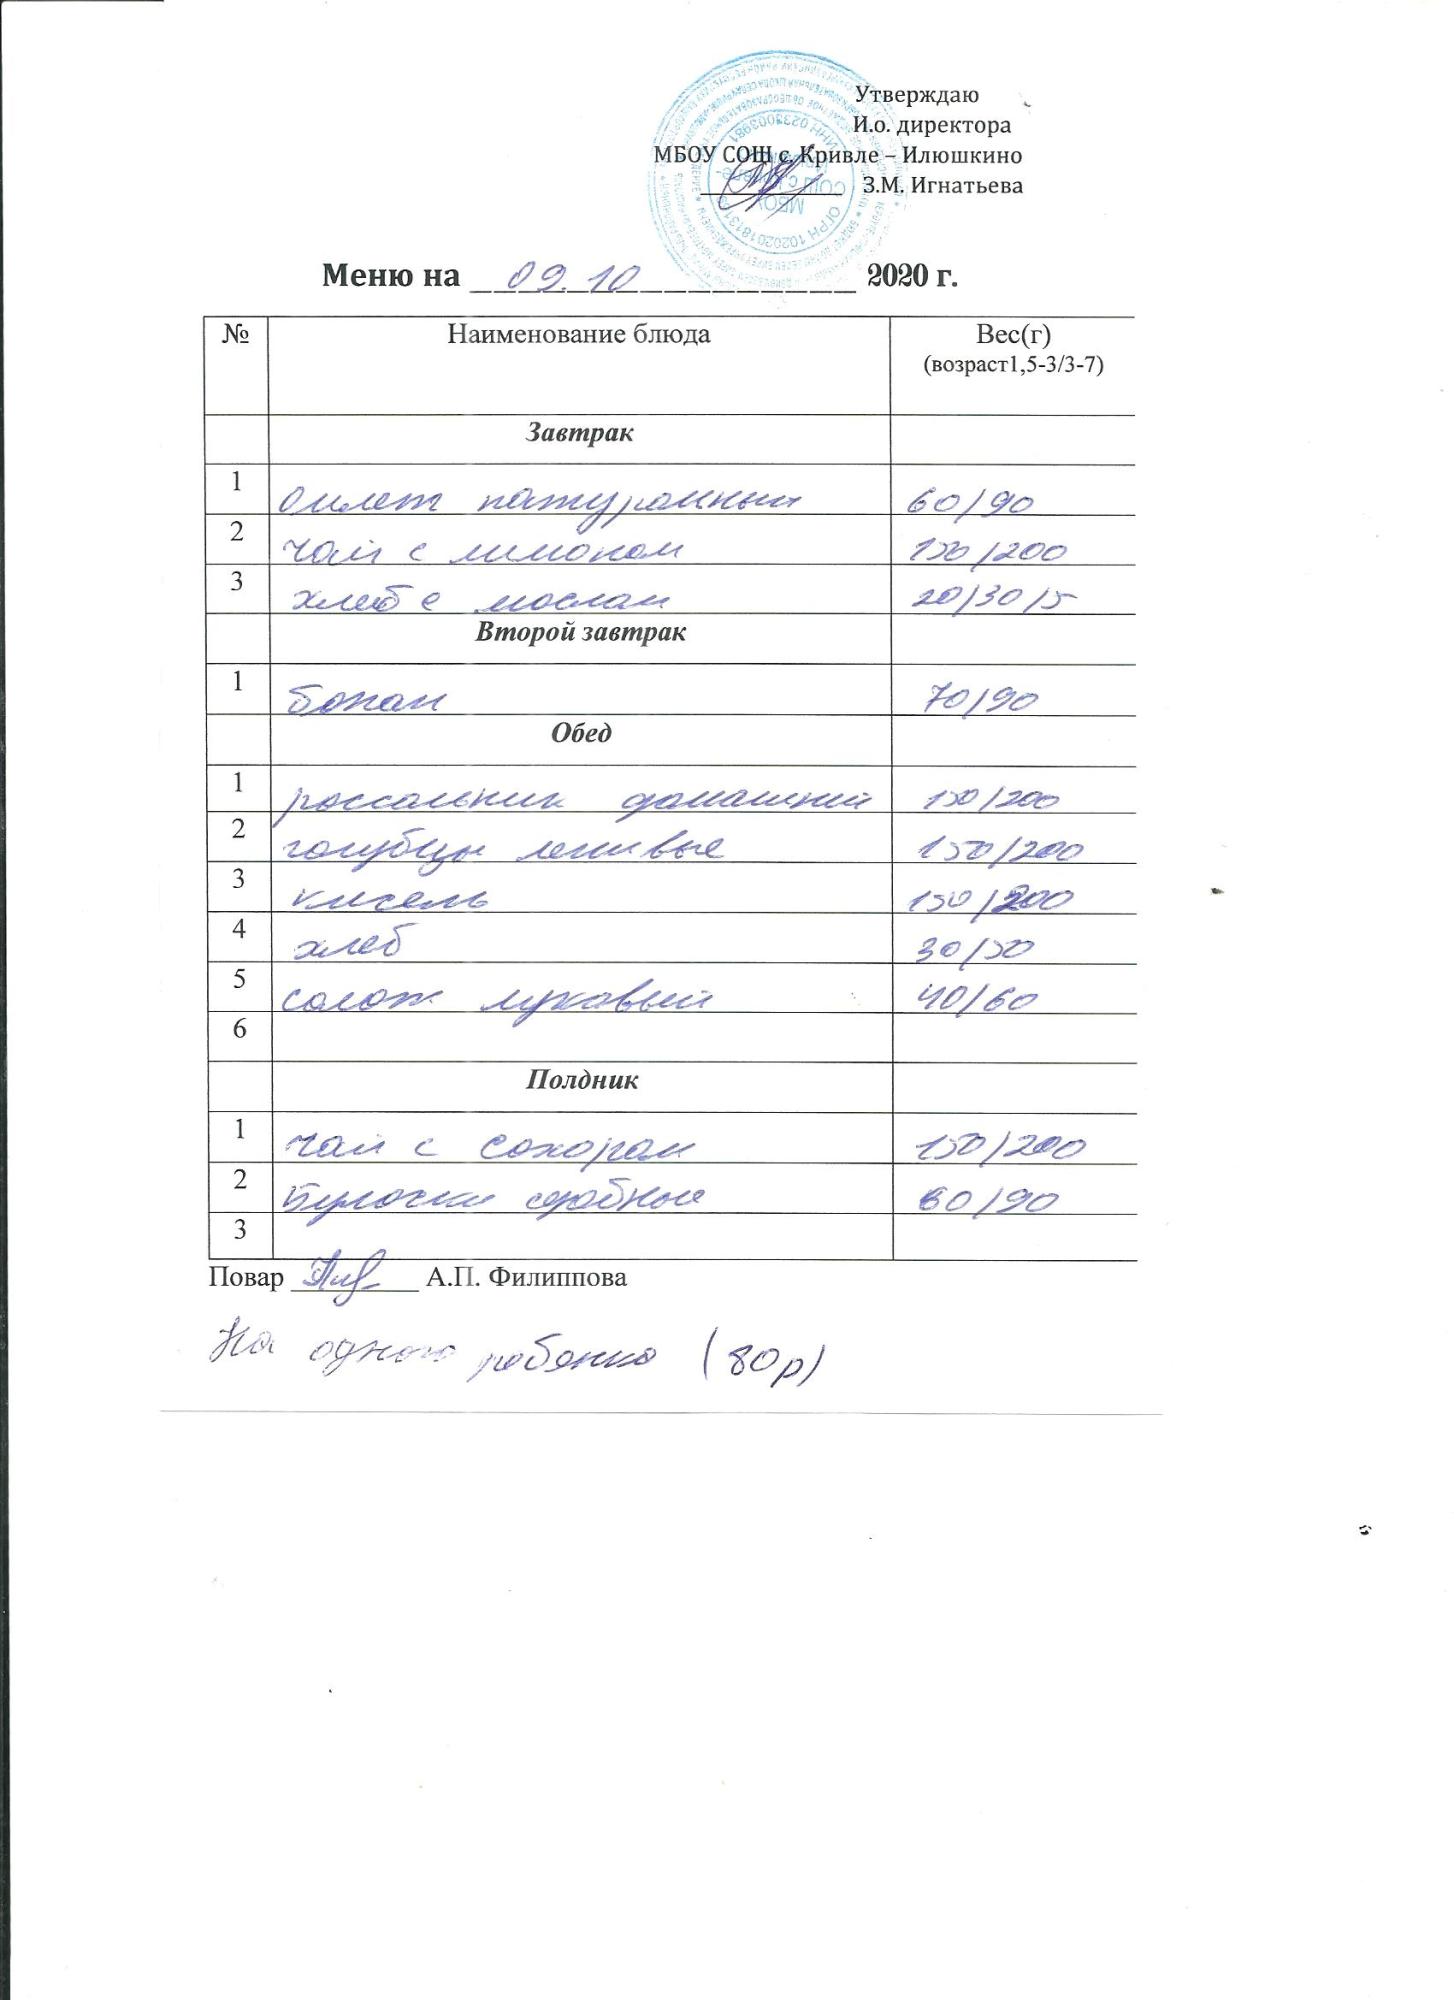 Утверждаю
И.о. директора
МБОУ СОШ с. Кривле – Илюшкино
З.М. Игнатьева
ОГРН 1020201813
ИНН 0233003981
МБОУ
СОШ с. Кривле-
Меню на 09.10 2020 г.
№ Наименование блюда Вес(г)
(возраст1,5-3/3-7)
Завтрак
1 омлет натуральный 60/90
2 чай с лимоном 150/200
3 хлеб с маслом 20/30/5
Второй завтрак
1 банан 70/90
Обед
1 рассольник домашний 150/200
2 голубцы ленивые 150/200
3 кисель 150/200
4 хлеб 30/50
5 салат луковый 40/60
6
Полдник
1 чай с сахаром 150/200
2 Булочки сдобные 60/90
3
Повар А.П. Филиппова
На одного ребенка (80р)